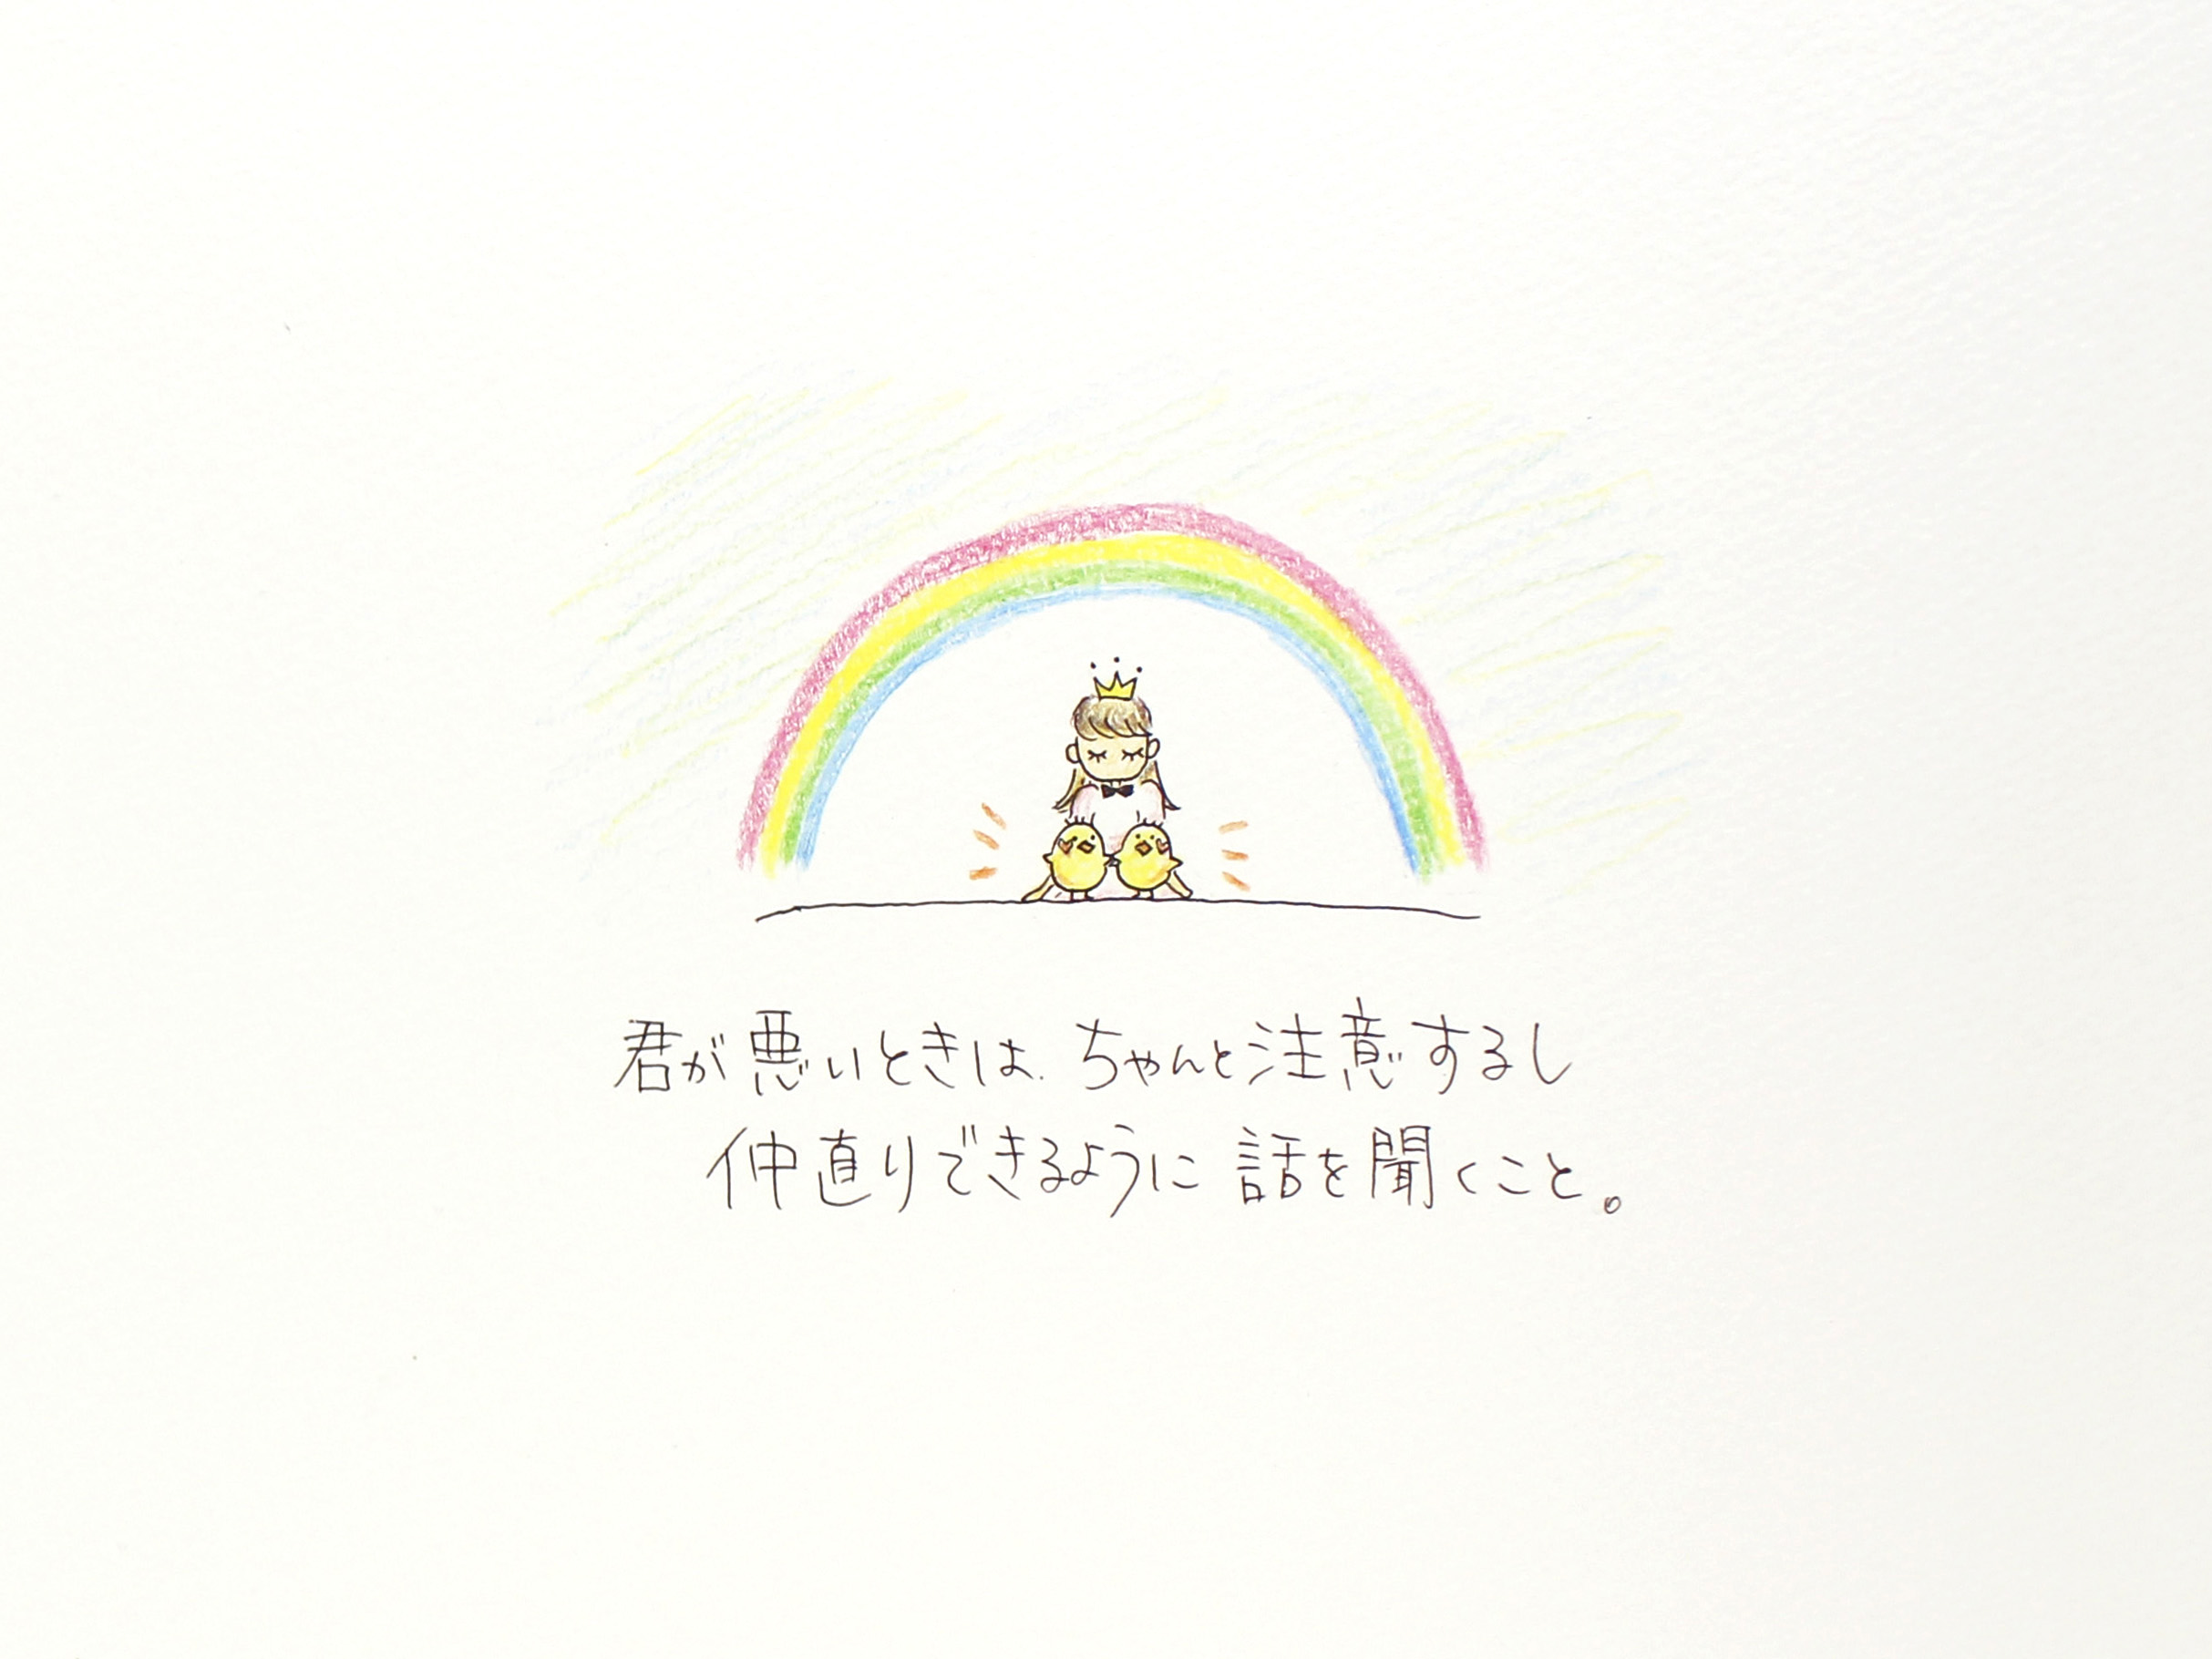 君が悪いときは、ちゃんと注意するし
仲直りできるように 話を聞くこと。